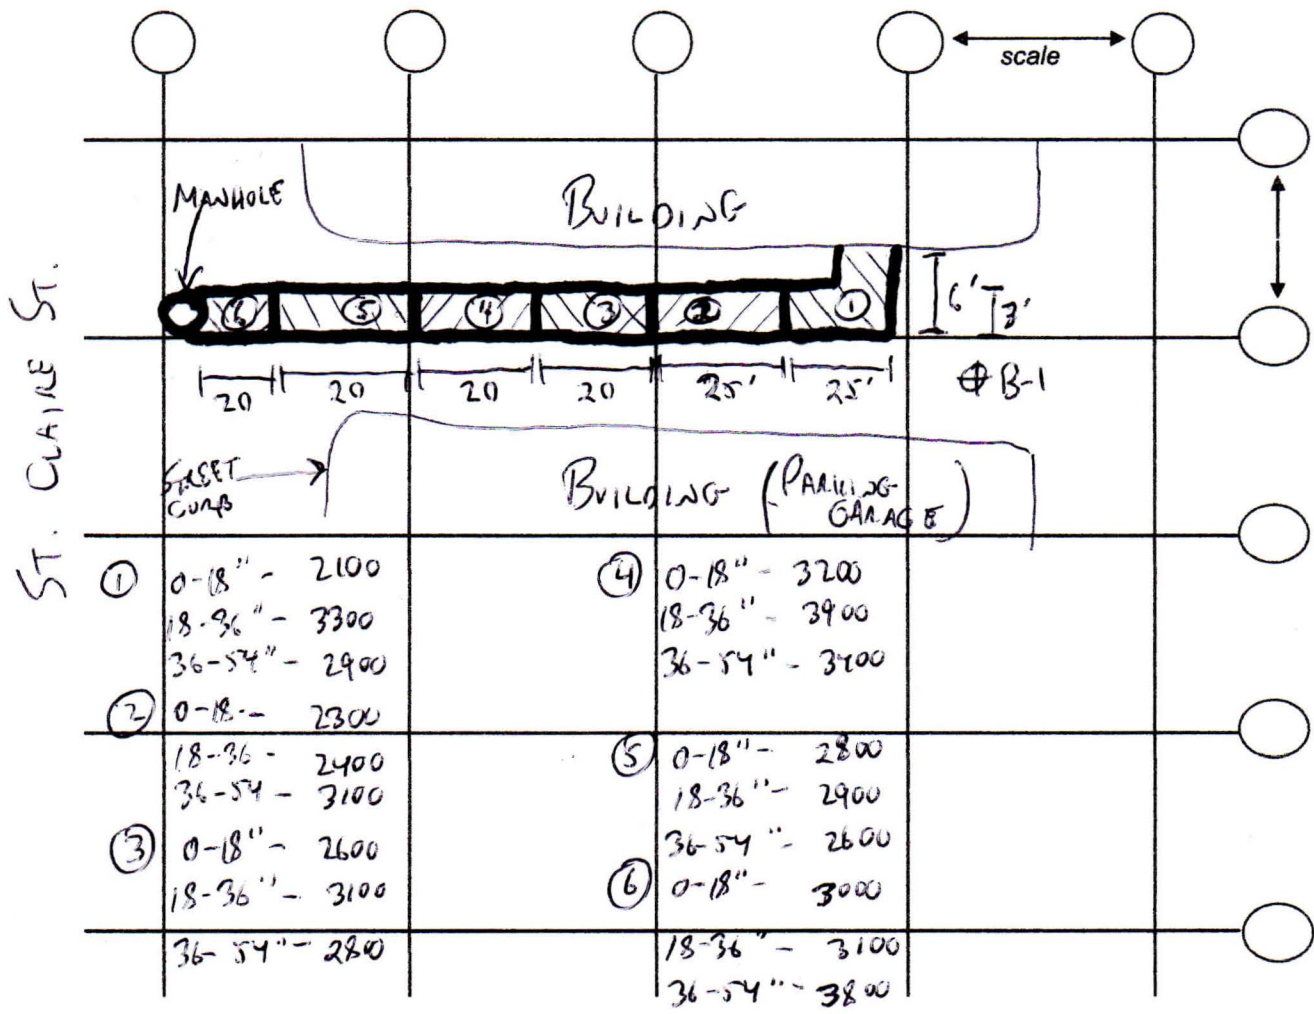 scale
MANHOLE
BUILDING
ST. CLAIRE ST.
6 5 4 3 2 1
6' 3'
20 20 20 20 25' 25'
B-1
STREET
CURB
BUILDING (PARKING
GARAGE)
1 0-18" - 2100
18-36" - 3300
36-54" - 2900
2 0-18 - 2300
18-36 - 2400
36-54 - 3100
3 0-18" - 2600
18-36" - 3100
36-54" - 2800
4 0-18" - 3200
18-36" - 3900
36-54" - 3400
5 0-18" - 2800
18-36" - 2900
36-54" - 2600
6 0-18" - 3000
18-36" - 3100
36-54" - 3800